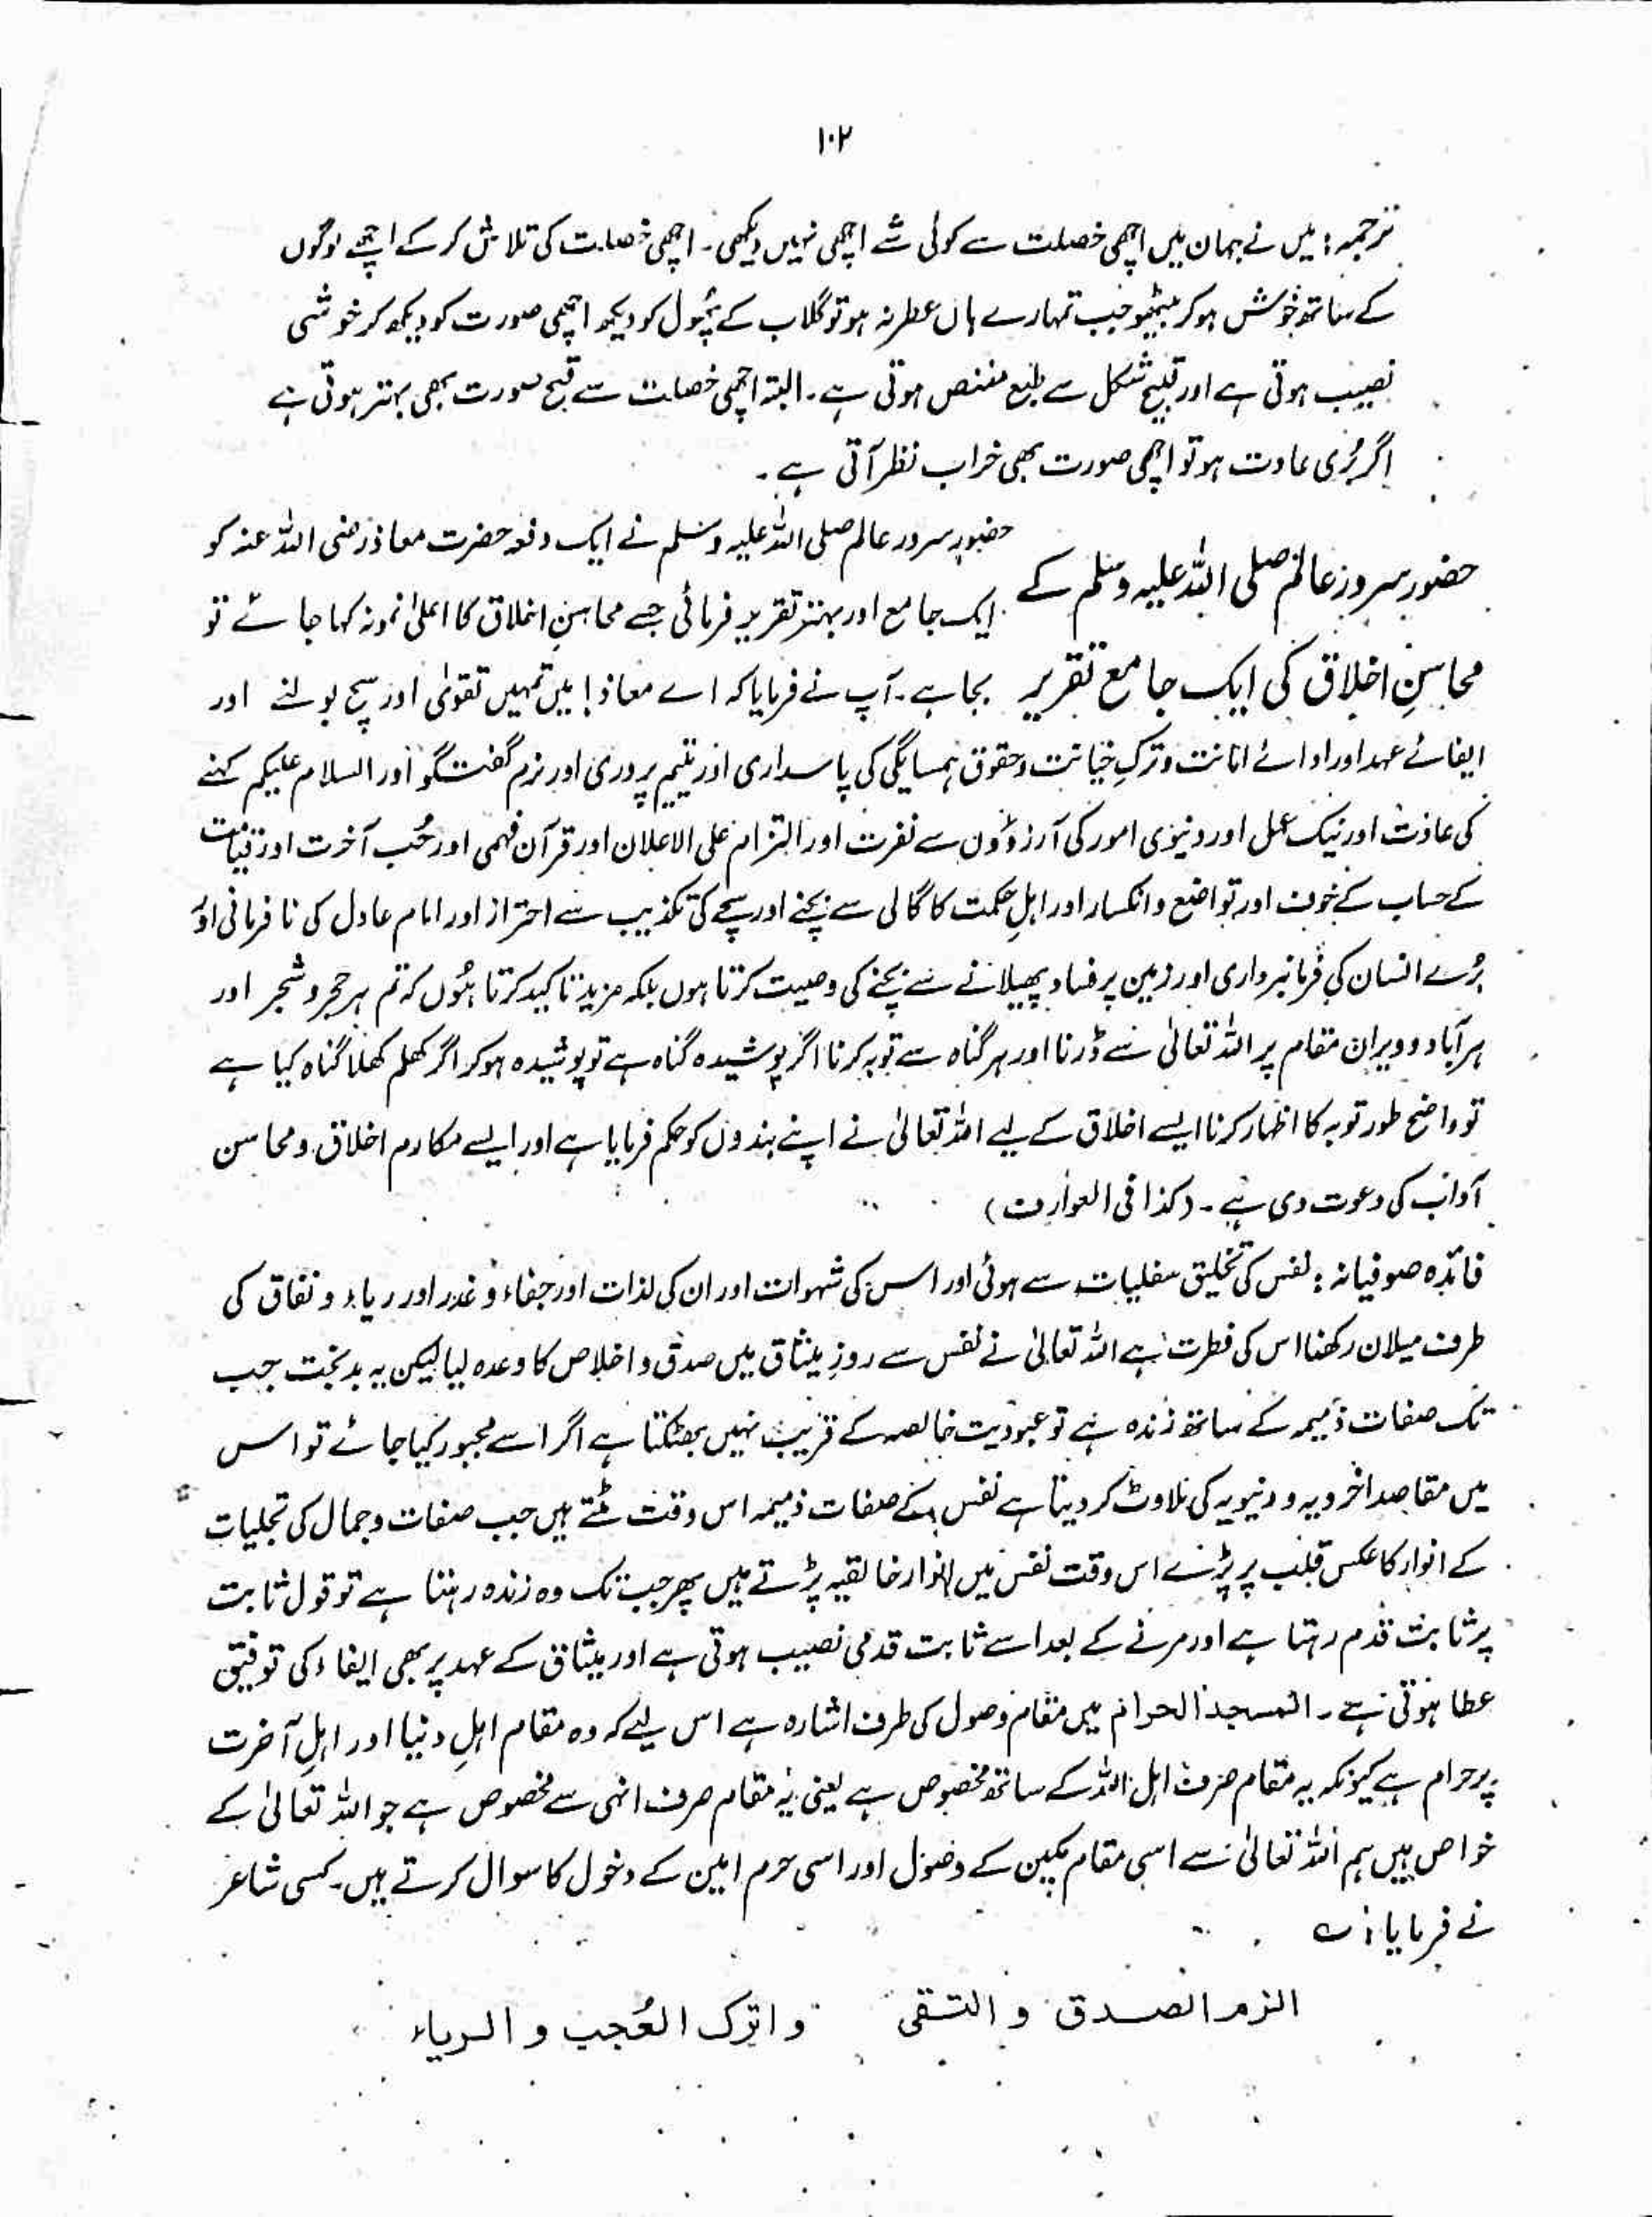 ۱۰۲
ترجمہ: میں نے جہان میں اچھی خصلت سے کوئی شے اچھی نہیں دیکھی۔ اچھی خصلت کی تلاش کر کے اچھے لوگوں
کے ساتھ خوش ہو کر بیٹھو جب تمہارے ہاں عطر نہ ہو تو گلاب کے پُھول کو دیکھ اچھی صورت کو دیکھ کر خوشی
نصیب ہوتی ہے اور قبیح شکل سے طبع منغص ہوتی ہے۔ البتہ اچھی خصلت سے قبیح صورت بھی بہتر ہوتی ہے
اگر بُری عادت ہو تو اچھی صورت بھی خراب نظر آتی ہے۔
حضور سرورِ عالم صلی اللہ علیہ وسلم کے
محاسنِ اخلاق کی ایک جامع تقریر
حضور سرور عالم صلی اللہ علیہ وسلم نے ایک دفعہ حضرت معاذ رضی اللہ عنہ کو
ایک جامع اور بہتر تقریر فرمائی جسے محاسنِ اخلاق کا اعلیٰ نمونہ کہا جائے تو
بجا ہے۔ آپ نے فرمایا کہ اے معاذ! میں تمہیں تقویٰ اور سچ بولنے اور
ایفائے عہد اور ادائے امانت و ترکِ خیانت و حقوق ہمسائیگی کی پاسداری اور یتیم پروری اور نرم گفتگو اور السلام علیکم کہنے
کی عادت اور نیک عمل اور دنیوی امور کی آرزوؤں سے نفرت اور التزام علی الاعلان اور قرآن فہمی اور حُب آخرت اور قیامت
کے حساب کے خوف اور تواضع و انکسار اور اہلِ حکمت کا گالی سے بچنے اور سچے کی تکذیب سے احتراز اور امام عادل کی نافرمانی اور
بُرے انسان کی فرمانبرداری اور زمین پر فساد پھیلانے سے بچنے کی وصیت کرتا ہوں بلکہ مزید تاکید کرتا ہُوں کہ تم ہر حجر و شجر اور
ہر آباد و ویران مقام پر اللہ تعالیٰ سے ڈرنا اور ہر گناہ سے توبہ کرنا اگر پوشیدہ گناہ ہے تو پوشیدہ ہو کر اگر کھلم کھلا گناہ کیا ہے
تو واضح طور توبہ کا اظہار کرنا ایسے اخلاق کے لیے اللہ تعالیٰ نے اپنے بندوں کو حکم فرمایا ہے اور ایسے مکارم اخلاق و محاسن
آداب کی دعوت دی ہے۔ (کذا فی العوارف)
فائدہ صوفیانہ: نفس کی تخلیق سفلیات سے ہوئی اور اس کی شہوات اور ان کی لذات اور جفاء و غدر اور ریاء و نفاق کی
طرف میلان رکھنا اس کی فطرت ہے اللہ تعالیٰ نے نفس سے روزِ میثاق میں صدق و اخلاص کا وعدہ لیا لیکن یہ بدبخت جب
تک صفات ذمیمہ کے ساتھ زندہ ہے تو عبودیت خالصہ کے قریب نہیں بھٹکتا ہے اگر اسے مجبور کیا جائے تو اس
میں مقاصد اخرویہ و دنیویہ کی ملاوٹ کر دیتا ہے نفس کے صفات ذمیمہ اس وقت مٹتے ہیں جب صفات و جمال کی تجلیات
کے انوار کا عکس قلب پر پڑے اس وقت نفس میں انوار خالقیہ پڑتے ہیں پھر جب تک وہ زندہ رہتا ہے تو قول ثابت
پر ثابت قدم رہتا ہے اور مرنے کے بعد اسے ثابت قدمی نصیب ہوتی ہے اور میثاق کے عہد پر بھی ایفاء کی توفیق
عطا ہوتی ہے۔ المسجد الحرام میں مقام وصول کی طرف اشارہ ہے اس لیے کہ وہ مقام اہلِ دنیا اور اہلِ آخرت
پر حرام ہے کیونکہ یہ مقام صرف اہل اللہ کے ساتھ مخصوص ہے یعنی یہ مقام صرف انہی سے مخصوص ہے جو اللہ تعالیٰ کے
خواص ہیں ہم اللہ تعالیٰ سے اسی مقام مکین کے وصول اور اسی حرم امین کے دخول کا سوال کرتے ہیں۔ کسی شاعر
نے فرمایا: ؎
الزم الصدق و التقى و اترك العُجب و الرياء